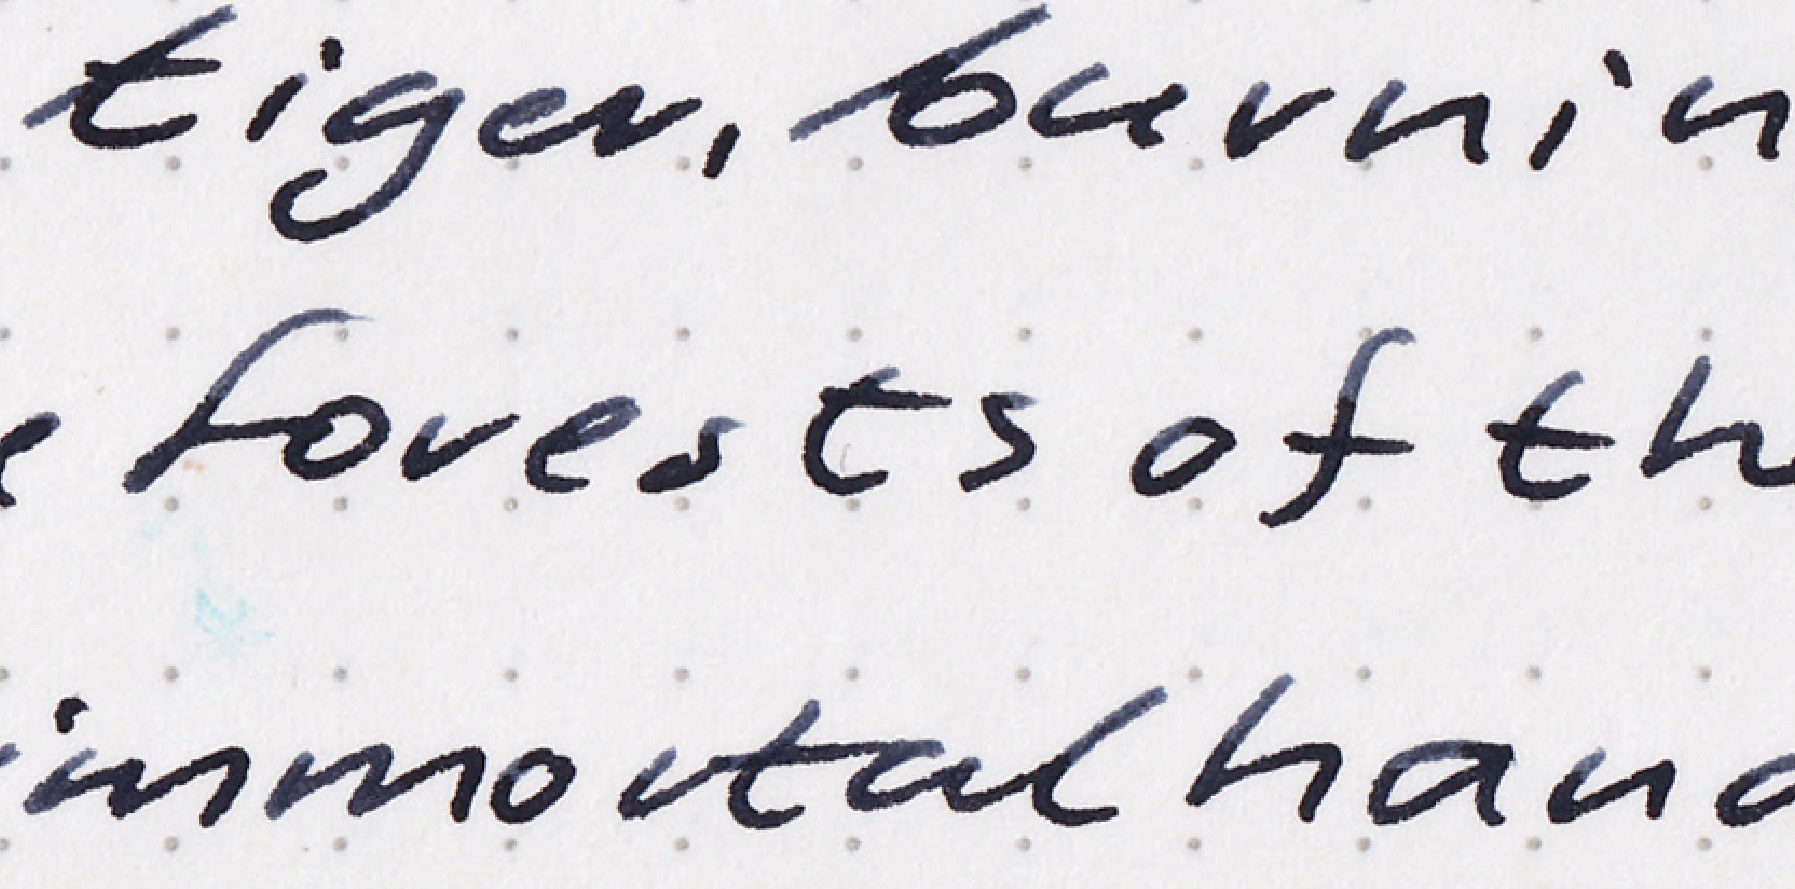 tiger, burnin
e forests of the
immortal hand